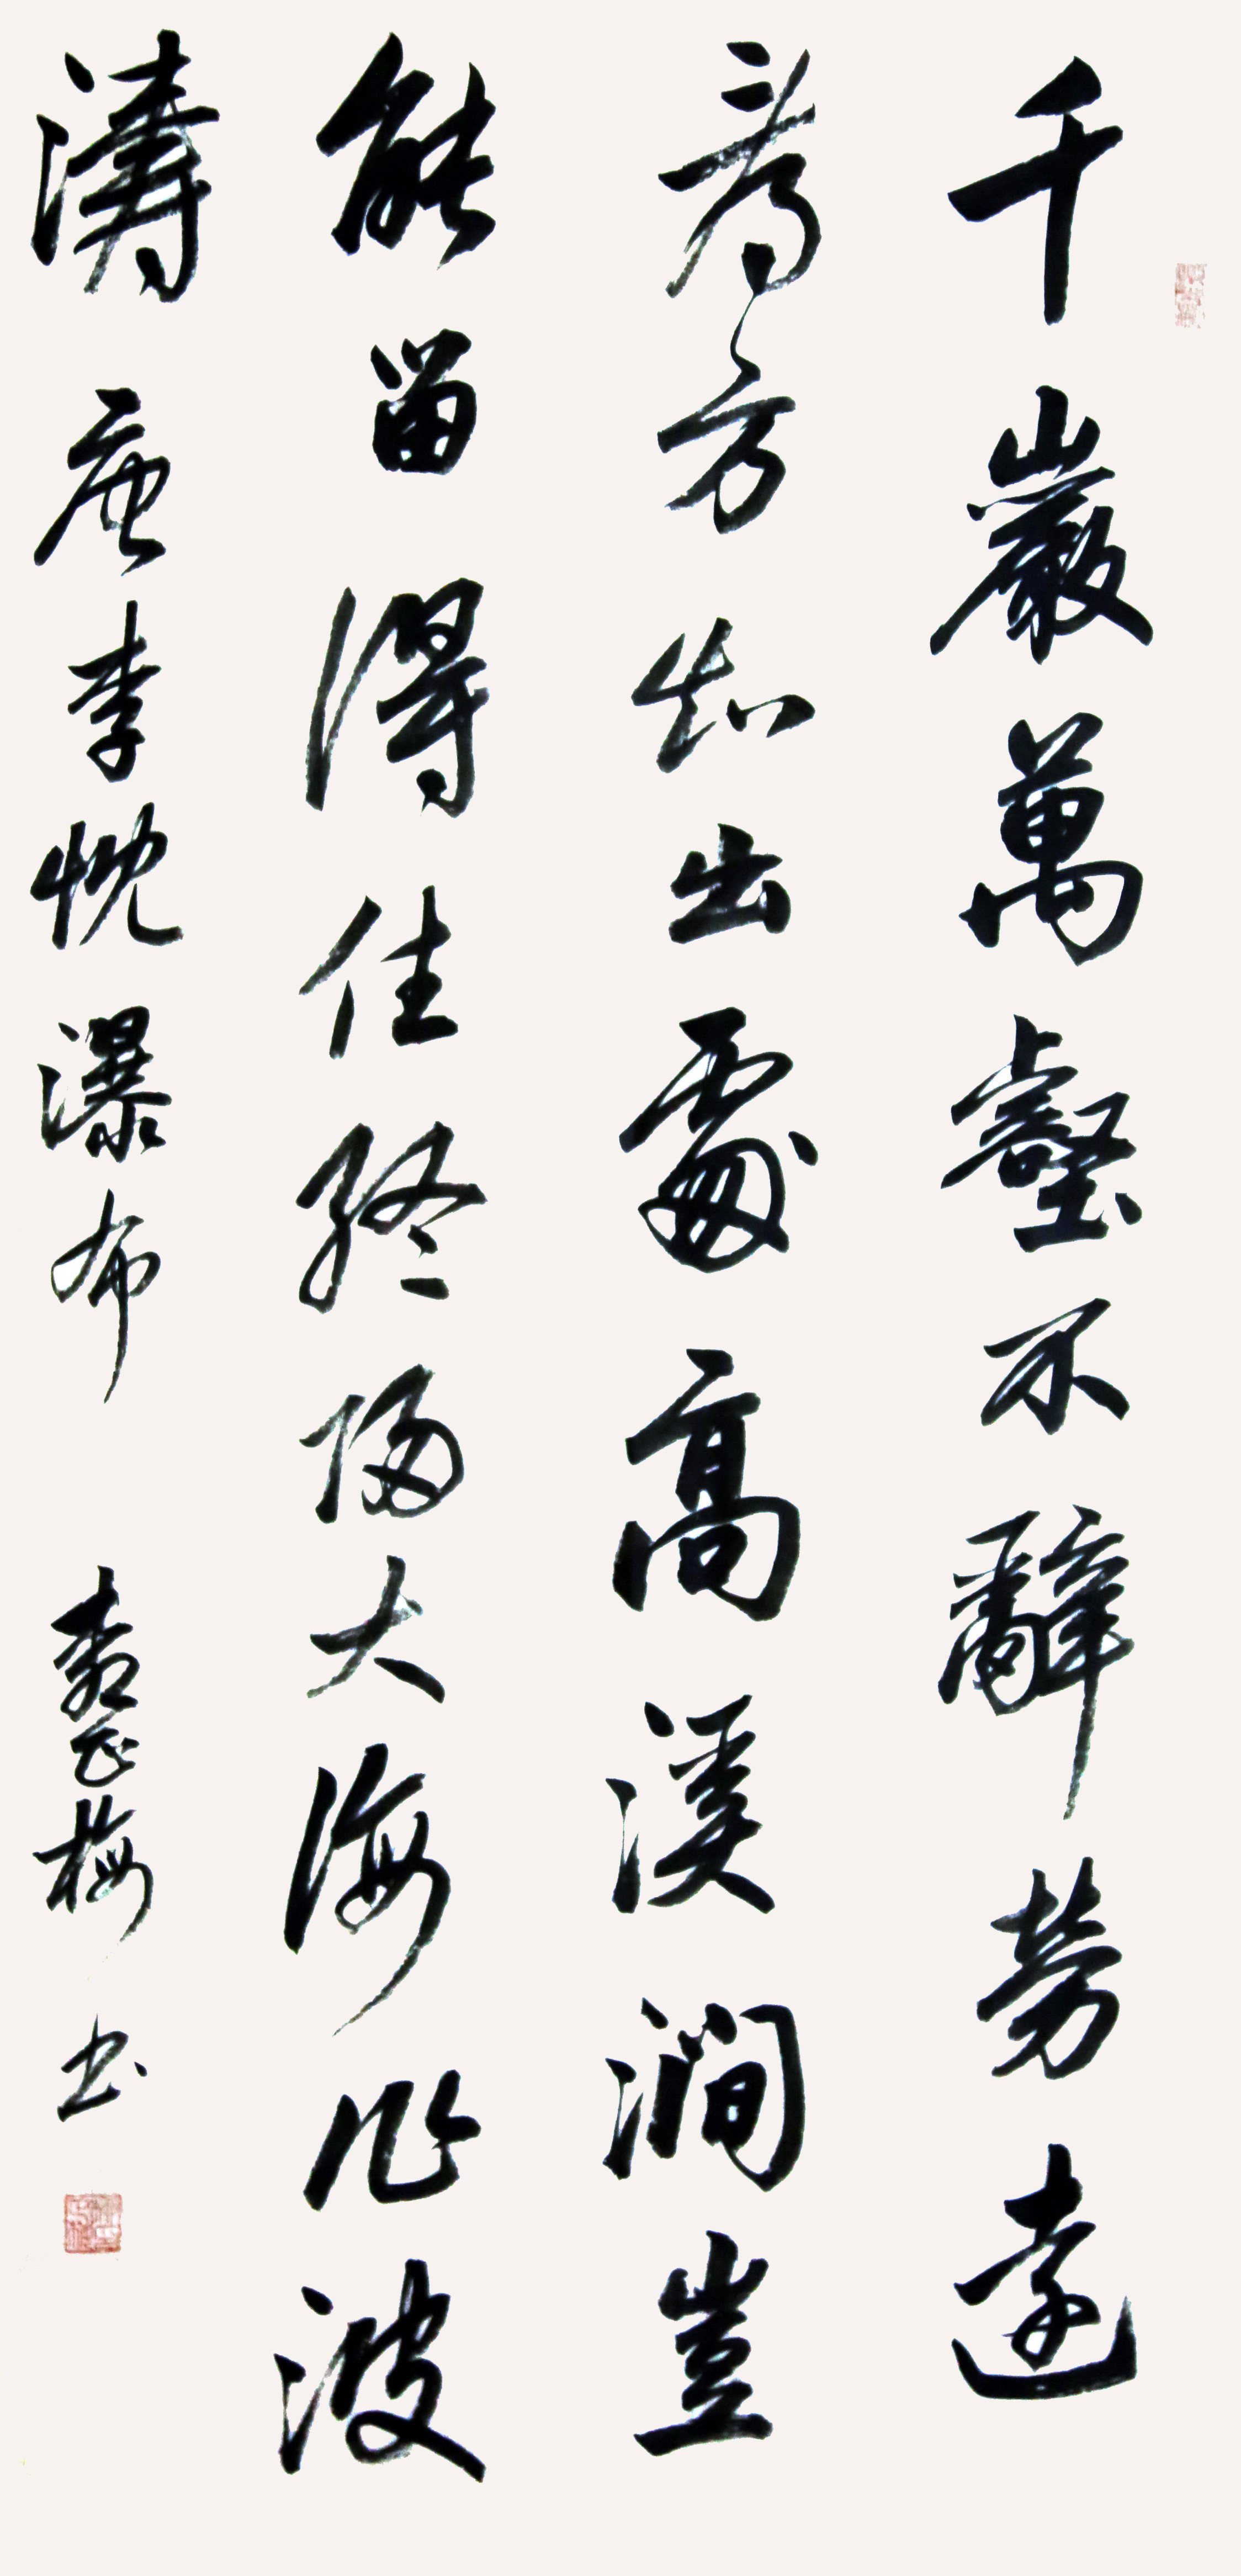 千巖萬壑不辭勞遠
看方知出處高溪澗豈
能留得住終歸大海作波
濤 唐李忱瀑布 袁正梅書